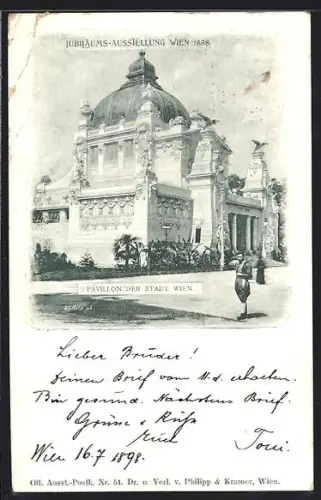 JUBILÄUMS-AUSSTELLUNG WIEN 1898.
PAVILLON DER STADT WIEN.
Lieber Bruder!
Deinen Brief vom 11. d. erhalten.
Bin gesund. Nächstens Brief.
Grüsse & Küsse
Toni.
Wien 16.7 1898.
Off. Ausst.-Postk. Nr. 51. Dr. u. Verl. v. Philipp & Kramer, Wien.